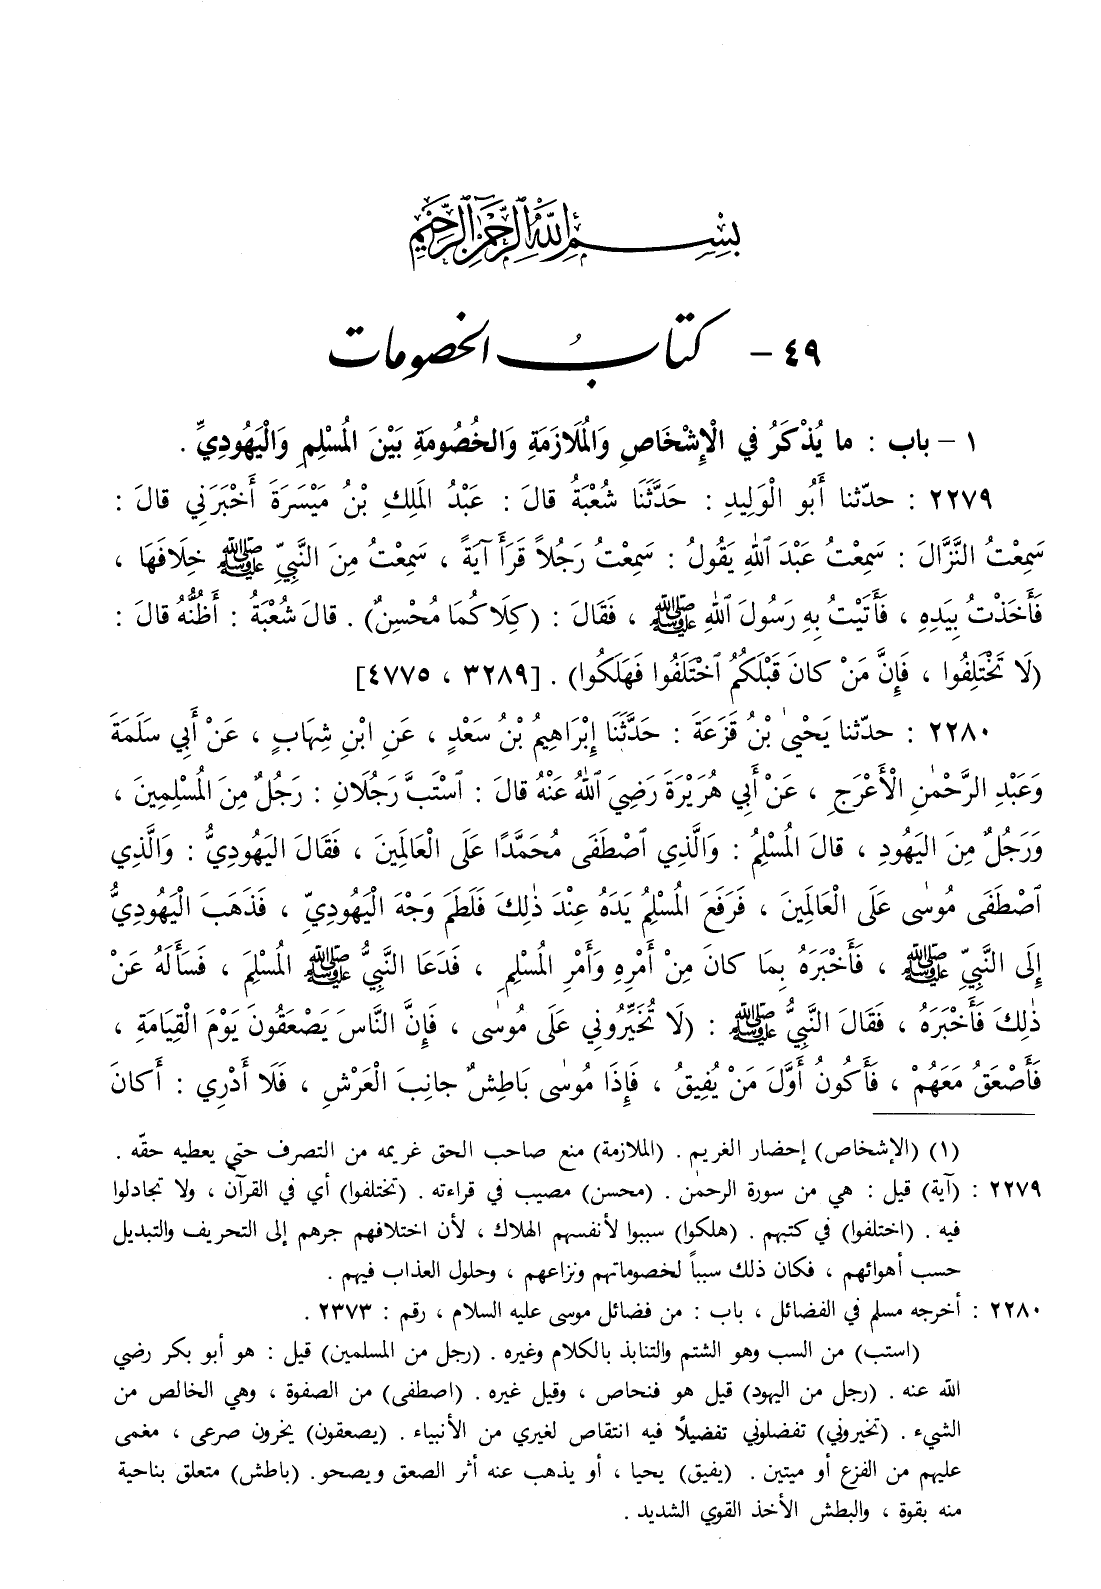 بِسْمِ اللهِ الرَّحْمٰنِ الرَّحِيْمِ
٤٩ - كتابُ الخصومات
١ - باب : ما يُذْكَرُ في الْإِشْخَاصِ وَالْمُلَازَمَةِ وَالخُصُومَةِ بَيْنَ الْمُسْلِمِ وَالْيَهُودِيِّ .
٢٢٧٩ : حدّثنا أَبُو الْوَلِيدِ : حَدَّثَنَا شُعْبَةُ قالَ : عَبْدُ المَلِكِ بْنُ مَيْسَرَةَ أَخْبَرَنِي قالَ :
سَمِعْتُ النَّزَّالَ : سَمِعْتُ عَبْدَ ٱللهِ يَقُولُ : سَمِعْتُ رَجُلاً قَرَأَ آيَةً ، سَمِعْتُ مِنَ النَّبِيِّ ﷺ خِلَافَهَا ،
فَأَخَذْتُ بِيَدِهِ ، فَأَتَيْتُ بِهِ رَسُولَ ٱللهِ ﷺ ، فَقَالَ : (كِلَاكُمَا مُحْسِنٌ) . قالَ شُعْبَةُ : أَظُنُّهُ قالَ :
(لَا تَخْتَلِفُوا ، فَإِنَّ مَنْ كانَ قَبْلَكُمُ ٱخْتَلَفُوا فَهَلَكُوا) . [٣٢٨٩ ، ٤٧٧٥]
٢٢٨٠ : حدّثنا يَحْيىٰ بْنُ قَزَعَةَ : حَدَّثَنَا إِبْرَاهِيمُ بْنُ سَعْدٍ ، عَنِ ابْنِ شِهَابٍ ، عَنْ أَبِي سَلَمَةَ
وَعَبْدِ الرَّحْمٰنِ الْأَعْرَجِ ، عَنْ أَبِي هُرَيْرَةَ رَضِيَ ٱللهُ عَنْهُ قالَ : ٱسْتَبَّ رَجُلَانِ : رَجُلٌ مِنَ الْمُسْلِمِينَ ،
وَرَجُلٌ مِنَ الْيَهُودِ ، قالَ الْمُسْلِمُ : وَالَّذِي ٱصْطَفَى مُحَمَّدًا عَلَى الْعَالَمِينَ ، فَقَالَ الْيَهُودِيُّ : وَالَّذِي
ٱصْطَفَى مُوسٰى عَلَى الْعَالَمِينَ ، فَرَفَعَ الْمُسْلِمُ يَدَهُ عِنْدَ ذٰلِكَ فَلَطَمَ وَجْهَ الْيَهُودِيِّ ، فَذَهَبَ الْيَهُودِيُّ
إِلَى النَّبِيِّ ﷺ ، فَأَخْبَرَهُ بِمَا كانَ مِنْ أَمْرِهِ وَأَمْرِ الْمُسْلِمِ ، فَدَعَا النَّبِيُّ ﷺ الْمُسْلِمَ ، فَسَأَلَهُ عَنْ
ذٰلِكَ فَأَخْبَرَهُ ، فَقَالَ النَّبِيُّ ﷺ : (لَا تُخَيِّرُونِي عَلَى مُوسٰى ، فَإِنَّ النَّاسَ يَصْعَقُونَ يَوْمَ الْقِيَامَةِ ،
فَأَصْعَقُ مَعَهُمْ ، فَأَكُونُ أَوَّلَ مَنْ يُفِيقُ ، فَإِذَا مُوسٰى بَاطِشٌ جانِبَ الْعَرْشِ ، فَلَا أَدْرِي : أَكانَ
(١) (الإشخاص) إحضار الغريم . (الملازمة) منع صاحب الحق غريمه من التصرف حتى يعطيه حقّه .
٢٢٧٩ : (آية) قيل : هي من سورة الرحمن . (محسن) مصيب في قراءته . (تختلفوا) أي في القرآن ، ولا تجادلوا
فيه . (اختلفوا) في كتبهم . (هلكوا) سببوا لأنفسهم الهلاك ، لأن اختلافهم جرهم إلى التحريف والتبديل
حسب أهوائهم ، فكان ذلك سبباً لخصوماتهم ونزاعهم ، وحلول العذاب فيهم .
٢٢٨٠ : أخرجه مسلم في الفضائل ، باب : من فضائل موسى عليه السلام ، رقم : ٢٣٧٣ .
(استب) من السب وهو الشتم والتنابذ بالكلام وغيره . (رجل من المسلمين) قيل : هو أبو بكر رضي
الله عنه . (رجل من اليهود) قيل هو فنحاص ، وقيل غيره . (اصطفى) من الصفوة ، وهي الخالص من
الشيء . (تخيروني) تفضلوني تفضيلاً فيه انتقاص لغيري من الأنبياء . (يصعقون) يخرون صرعى ، مغمى
عليهم من الفزع أو ميتين . (يفيق) يحيا ، أو يذهب عنه أثر الصعق ويصحو. (باطش) متعلق بناحية
منه بقوة ، والبطش الأخذ القوي الشديد .